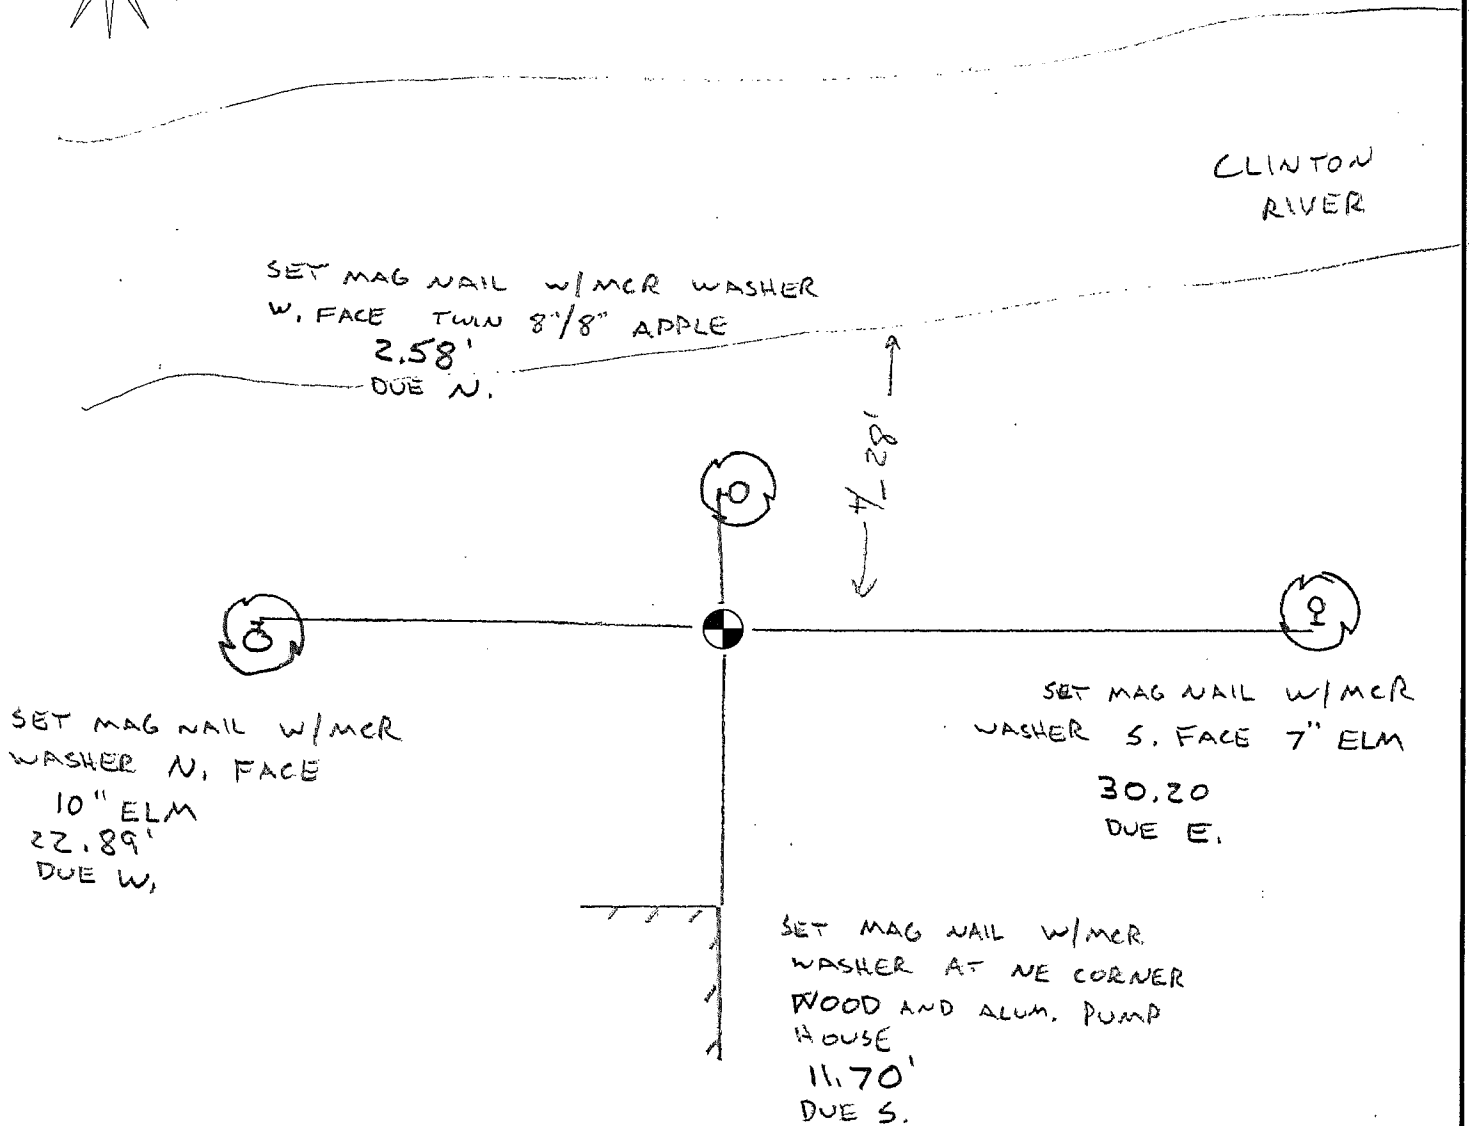 CLINTON
RIVER
SET MAG NAIL W/MCR WASHER
W. FACE TWIN 8"/8" APPLE
2.58'
DUE N.
SET MAG NAIL W/MCR
WASHER N. FACE
10" ELM
22.89'
DUE W.
SET MAG NAIL W/MCR
WASHER S. FACE 7" ELM
30.20
DUE E.
SET MAG NAIL W/MCR
WASHER AT NE CORNER
WOOD AND ALUM. PUMP
HOUSE
11.70'
DUE S.